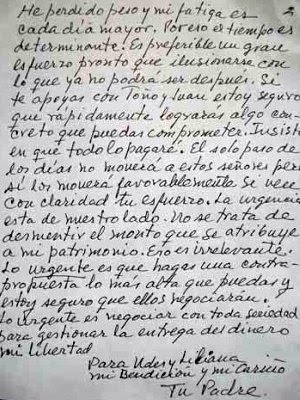 He perdido peso y mi fatiga es
cada día mayor. Por eso el tiempo es
determinante. Es preferible un gran
esfuerzo pronto que ilusionarse con
lo que ya no podrá ser después. Si
te apoyas con Toño y Juan estoy seguro
que rápidamente lograrás algo con-
creto que puedas comprometer. Insiste
en que todo lo pagaré. El solo paso de
los días no moverá a estos señores pero
sí los moverá favorablemente si ven
con claridad tu esfuerzo. La urgencia
esta de nuestro lado. No se trata de
desmentir el monto que se atribuye
a mi patrimonio. Eso es irrelevante.
Lo urgente es que hagas una contra-
propuesta lo más alta que puedas y
estoy seguro que ellos negociarán.
Lo urgente es negociar con toda seriedad
para gestionar la entrega del dinero
mi libertad
Para Udes y Liliana
mi Bendición y mi Cariño
Tu Padre.